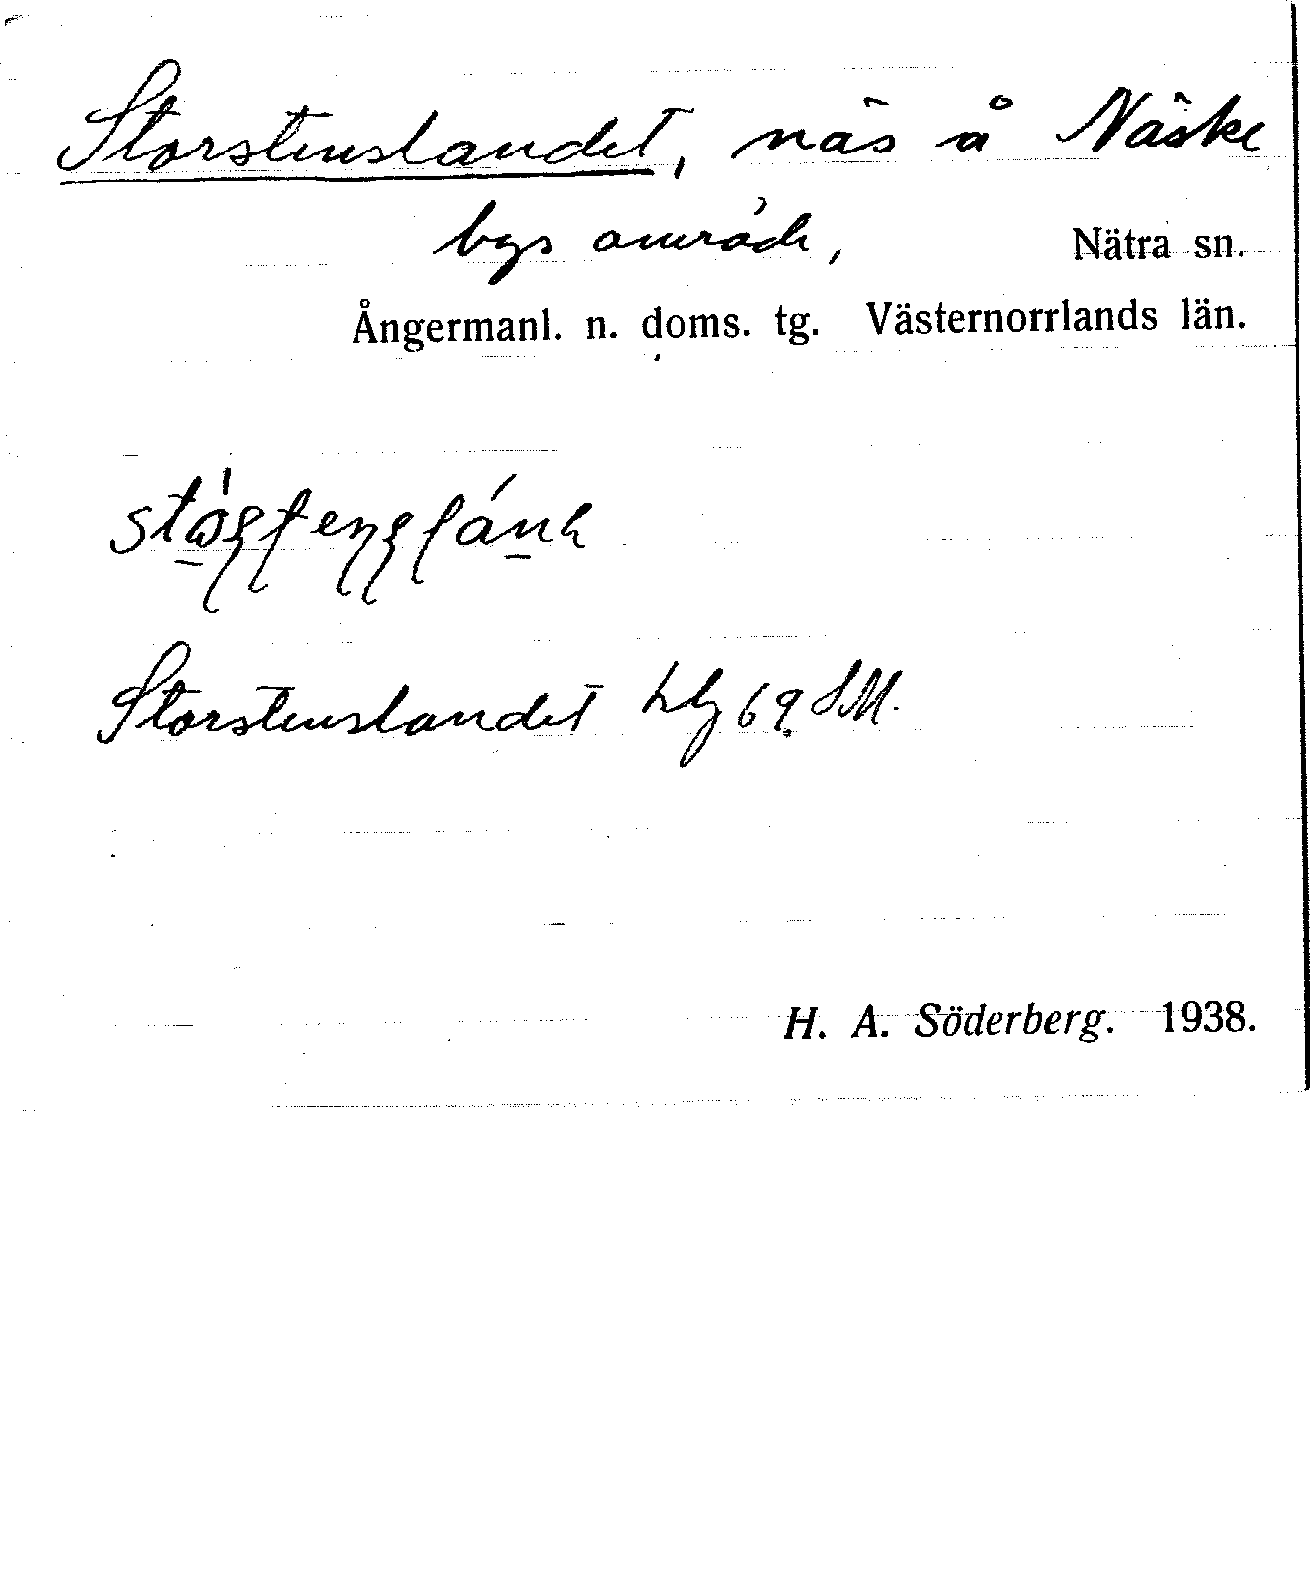 Storstenslandet, näs å Näske
bys område, Nätra sn.
Ångermanl. n. doms. tg. Västernorrlands län.
Storstenslandet hlg 69 SM.
H. A. Söderberg. 1938.